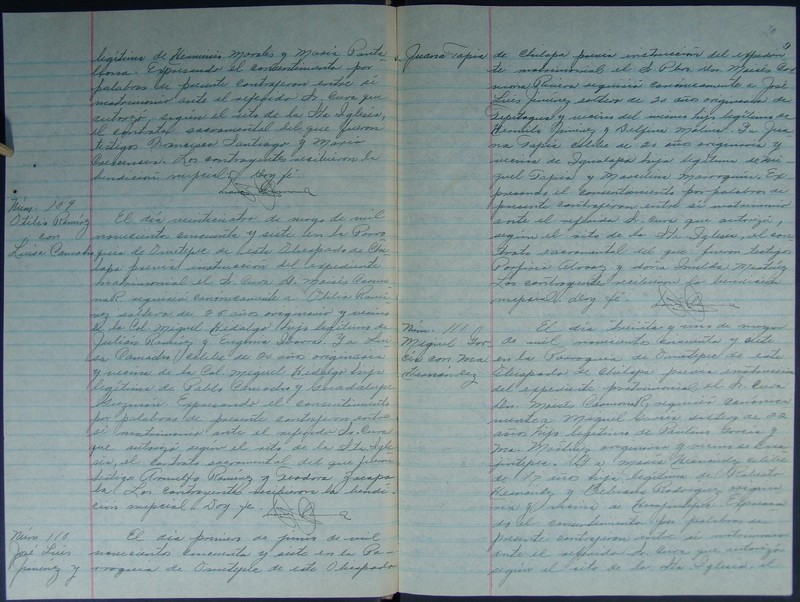 legítima de Herminio Morales y María Panta-
leona. Expresando el consentimiento por
palabras de presente contrajeron entre sí
matrimonio ante el referido Sr. Cura que
autorizo, según el rito de la Sta Iglesia,
el contrato sacramental del que fueron
testigos Santiago y María
Los contrayentes recibieron la
bendición nupcial. Doy fe.
Núm. 109
Otilio Ramírez
con
Luisa Camados
El día veinticuatro de mayo de mil
novecientos cincuenta y siete en la Parro
quia de Ometepec de este Obispado de Chi
lapa previa instrucción del expediente
matrimonial el Sr. Cura D. Moisés Carmo
na R requirió canónicamente a Otilio Ramí
rez soltero de 26 años originario y vecino
de la Col. Miguel Hidalgo hijo legítimo de
Julián Ramírez y Eugenia Ya Lui
sa Camados célibe de 20 años originaria
y vecina de la Col. Miguel Hidalgo hija
legítima de Pablo Camados y Guadalupe
Guzmán Expresando el consentimiento
por palabras de presente contrajeron entre
sí matrimonio ante el referido Sr. Cura
que autorizó según el rito de la Sta Igle-
sia, el contrato sacramental del que fueron
testigo Ramírez y Teodora
Los contrayente recibieron la bendi-
ción nupcial. Doy fe.
Núm 110
José Luis
Jimenez y
El día primero de junio de mil
novecientos cincuenta y siete en la Pa-
rroquia de Ometepec de este Obispado
Juana Tapia
de Chilapa previa instrucción del expedien
te matrimonial el Sr. Pbro. Dn. Moisés Car
mona Rivera requirió canónicamente a José
Luis Jimenez soltero de 20 años originario de
y vecino del mismo hijo legítimo de
Jimenez y Delfina Molina. Ya Jua
na Tapia célibe de 21 años originaria y
vecina de Igualapa hija legítima de Mi
guel Tapia y Marcelina Marroquín. Ex
presando el consentimiento por palabras de
presente contrajeron entre sí matrimonio
ante el referido Sr. Cura que autorizó,
según el rito de la Sta Iglesia, el con
trato sacramental del que fueron testigos
Porfirio Alvarez y Martínez
Los contrayente recibieron la bendición
nupcial Doy fe.
Núm. 111
Miguel Gar-
cía con Ma
Hernández
El día treinta y uno de mayo
de mil novecientos cincuenta y siete
en la Parroquia de Ometepec de este
Obispado de Chilapa previa instrucción
del expediente matrimonial el Sr. Cura
Dn. Moisés Carmona R, requirió canónica
mente a Miguel García soltero de 22
años hijo legítimo de Paulino García y
Ma. Martínez originario y vecino de
Ya María Hernández célibe
de 17 años hija legítima de Roberto
Hernández y Rodríguez origina
ria y vecina de Expresan
do el consentimiento por palabras de
presente contrajeron entre sí matrimonio
ante el referido Sr. Cura que autorizó
según el rito de la Sta Iglesia, el